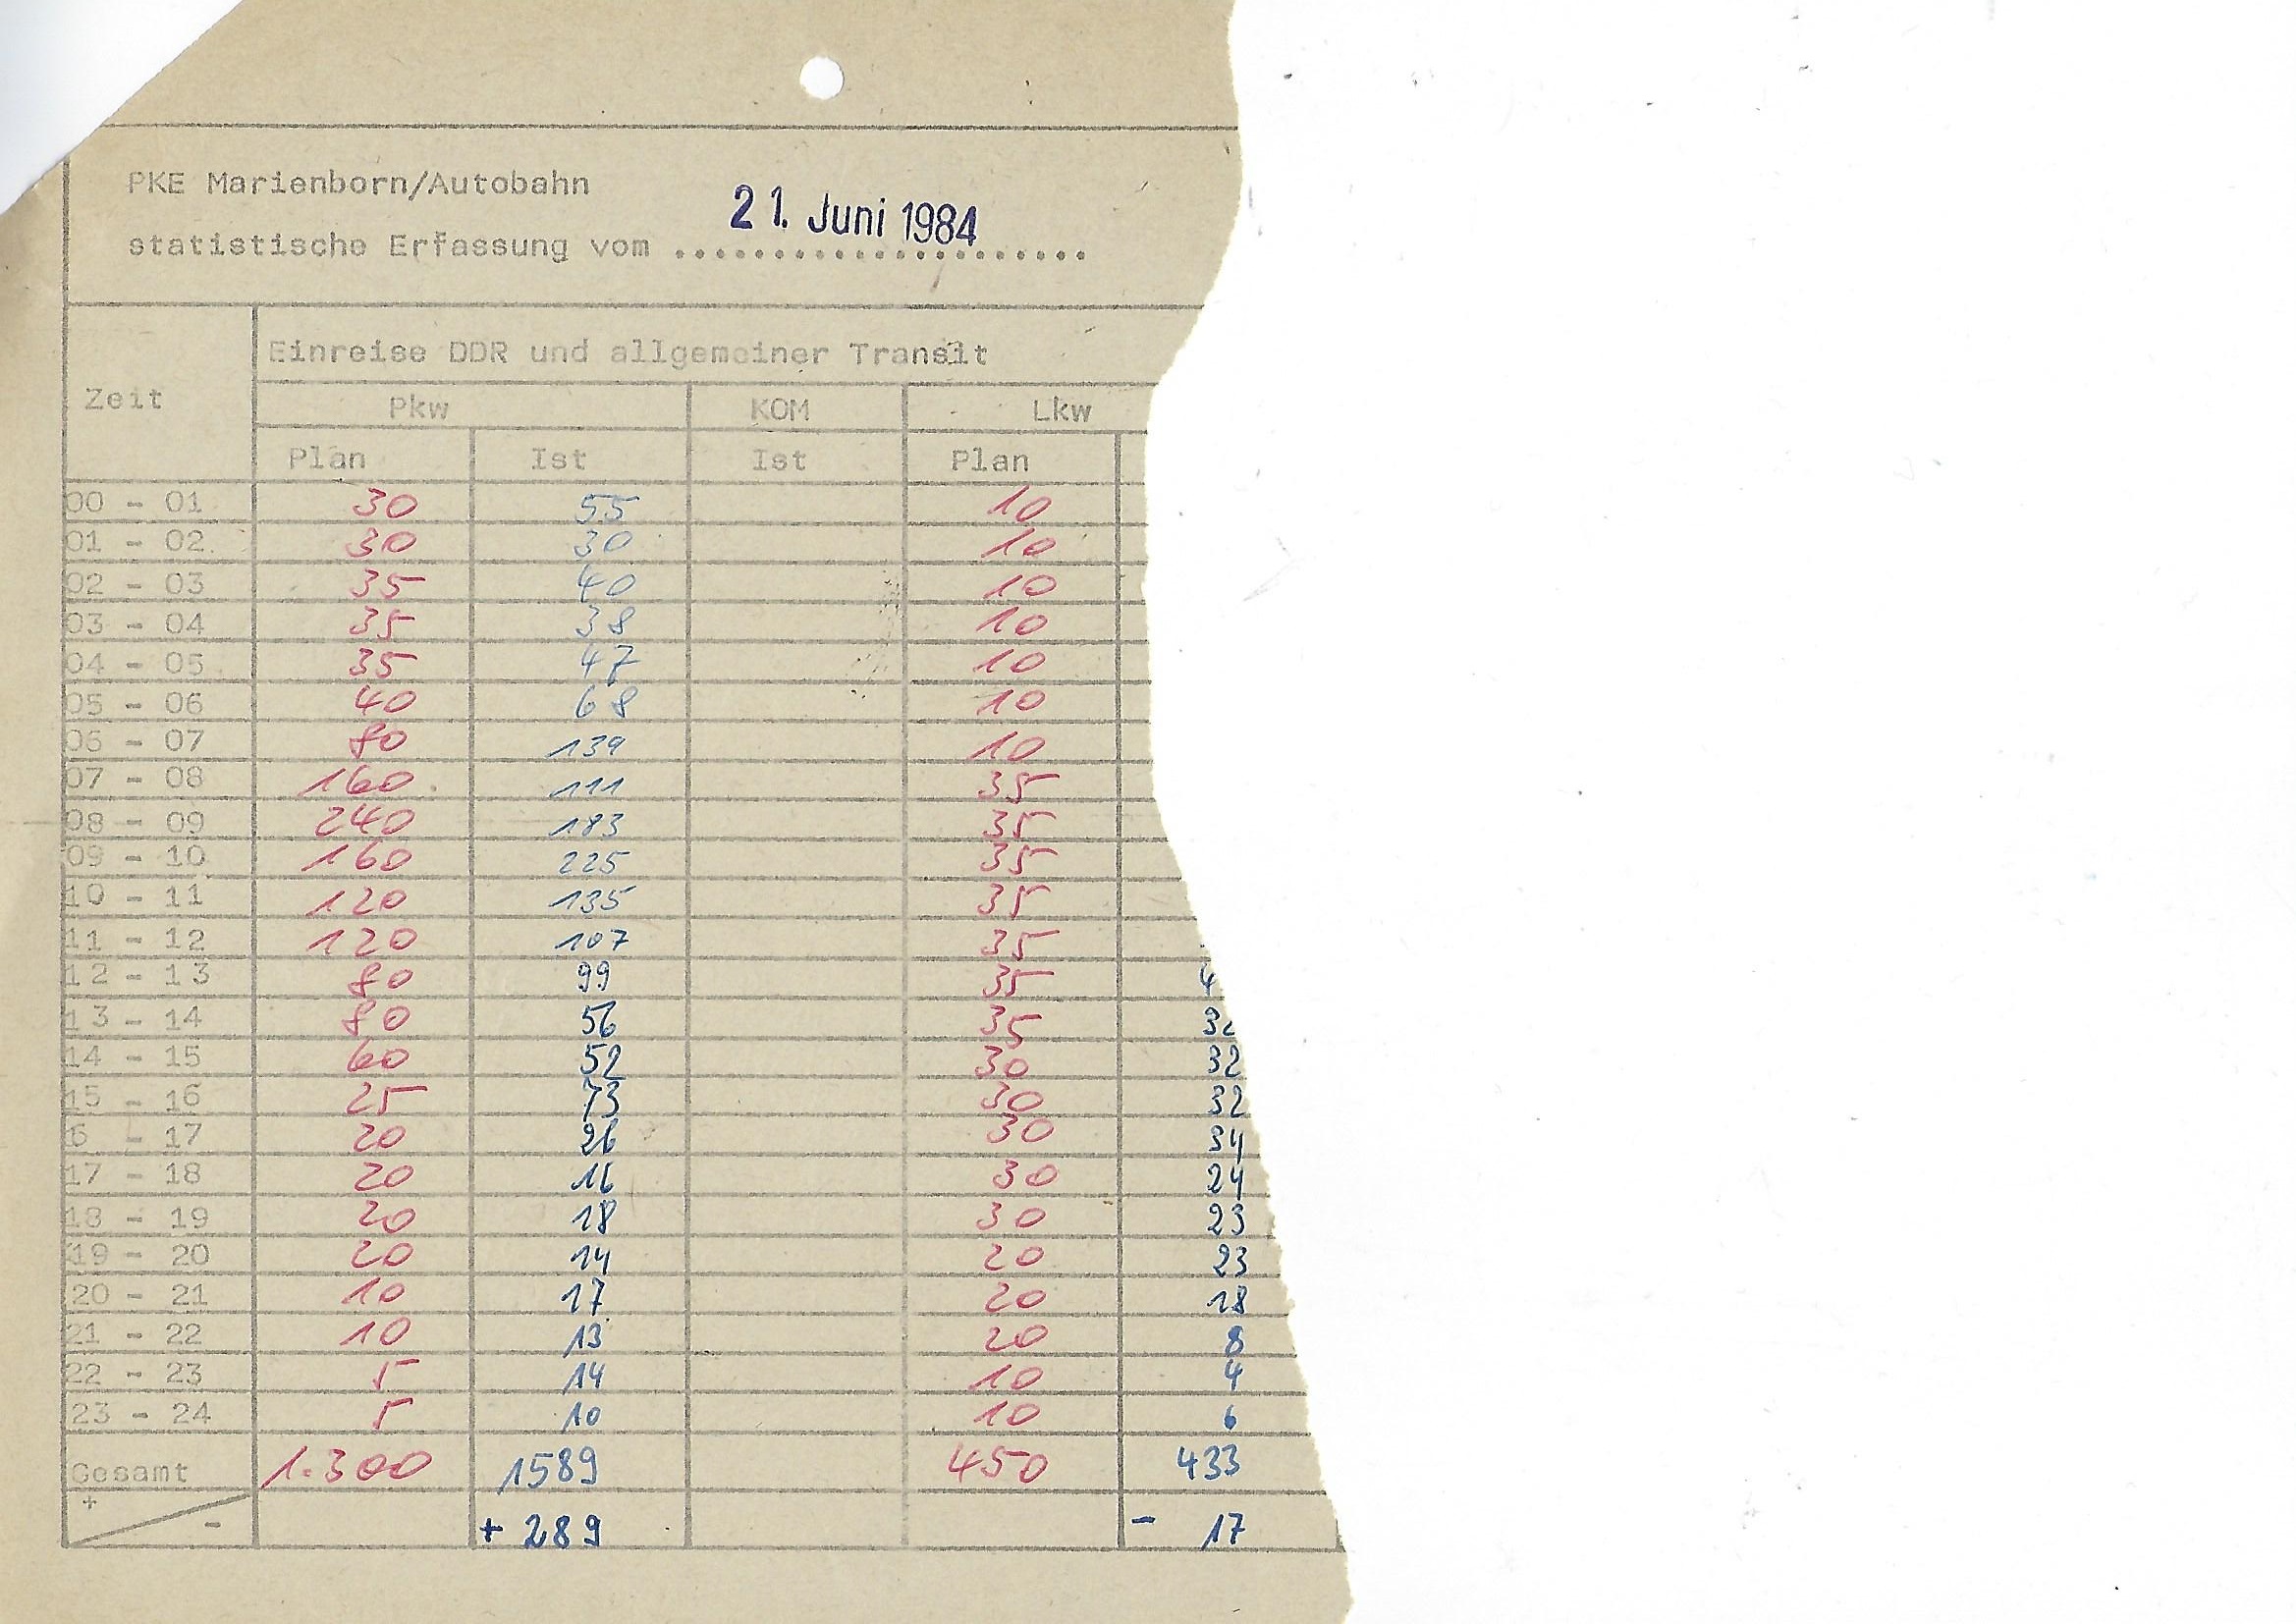 PKE Marienborn/Autobahn
21. Juni 1984
statistische Erfassung vom ......................
Einreise DDR und allgemeiner Transit
Zeit
Pkw KOM Lkw
Plan Ist Ist Plan
00 - 01 30 55 10
01 - 02 30 30 10
02 - 03 35 40 10
03 - 04 35 38 10
04 - 05 35 47 10
05 - 06 40 68 10
06 - 07 80 139 10
07 - 08 160 111 35
08 - 09 240 183 35
09 - 10 160 225 35
10 - 11 120 135 35
11 - 12 120 107 35
12 - 13 80 99 35 4
13 - 14 80 56 35
14 - 15 60 52 30 32
15 - 16 25 73 30 32
6 - 17 20 26 30 34
17 - 18 20 16 30 24
18 - 19 20 18 30 23
19 - 20 20 14 20 23
20 - 21 10 17 20 18
21 - 22 10 13 20 8
22 - 23 5 14 10 4
23 - 24 5 10 10 6
Gesamt 1.300 1589 450 433
+
- + 289 - 17